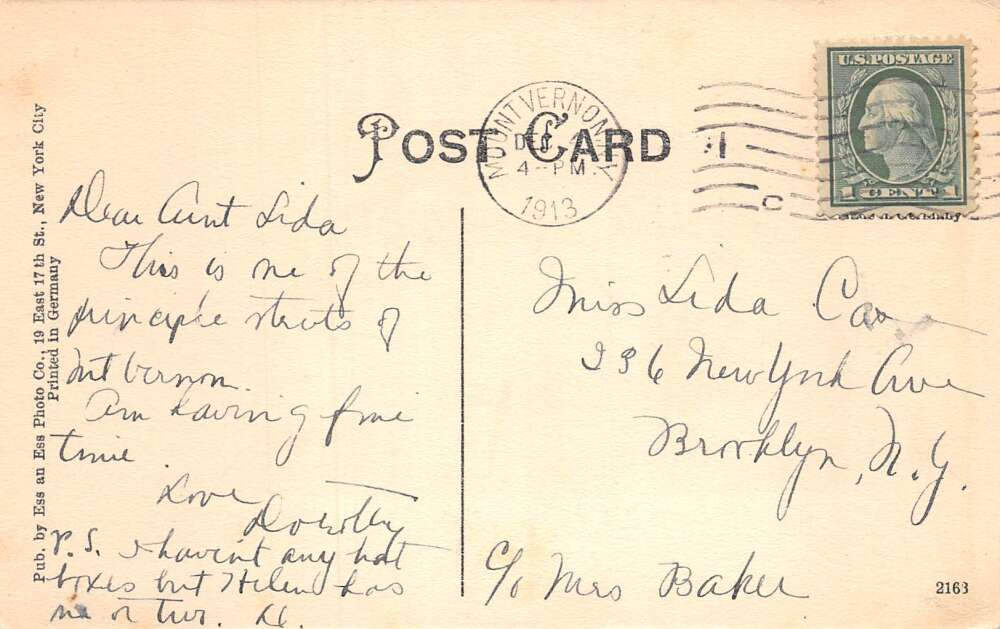 Pub. by Ess an Ess Photo Co., 19 East 17th St., New York City
Printed in Germany
POST CARD
MOUNT VERNON, N.Y.
4-PM
1913
U.S. POSTAGE
1 CENT 1
Dear Aunt Lida
This is one of the
principle streets of
Mt Vernon.
Am having fine
time
Love
Dorothy
P.S. I havent any hat
boxes but Helen has
one or two. D.
Miss Lida Cox
236 New York Ave
Brooklyn, N.Y.
c/o Mrs Baker
2163